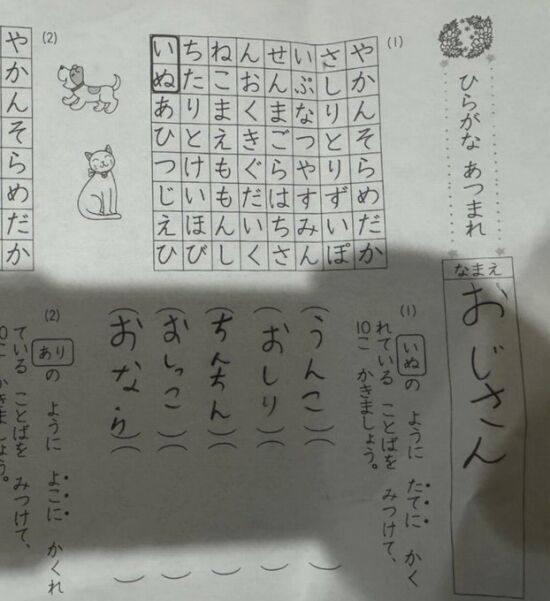 ひらがな あつまれ
なまえ
おじさん
(1)
やかんそらめだか
さしりとりずいぽ
いぷなつやすみん
せんまごらはちさ
んおくきぐだいく
ねこまえももんし
ちたりとけいほび
いぬあひつじえひ
(2)
やかんそらめだか
(1) いぬの ように たてに かく
れている ことばを みつけて、
10こ かきましょう。
(うんこ)( )
(おしり)( )
(ちんちん)( )
(おしっこ)( )
(おなら)( )
(2) ありの ように よこに かくれ
ている ことばを みつけて、
10こ かきましょう。